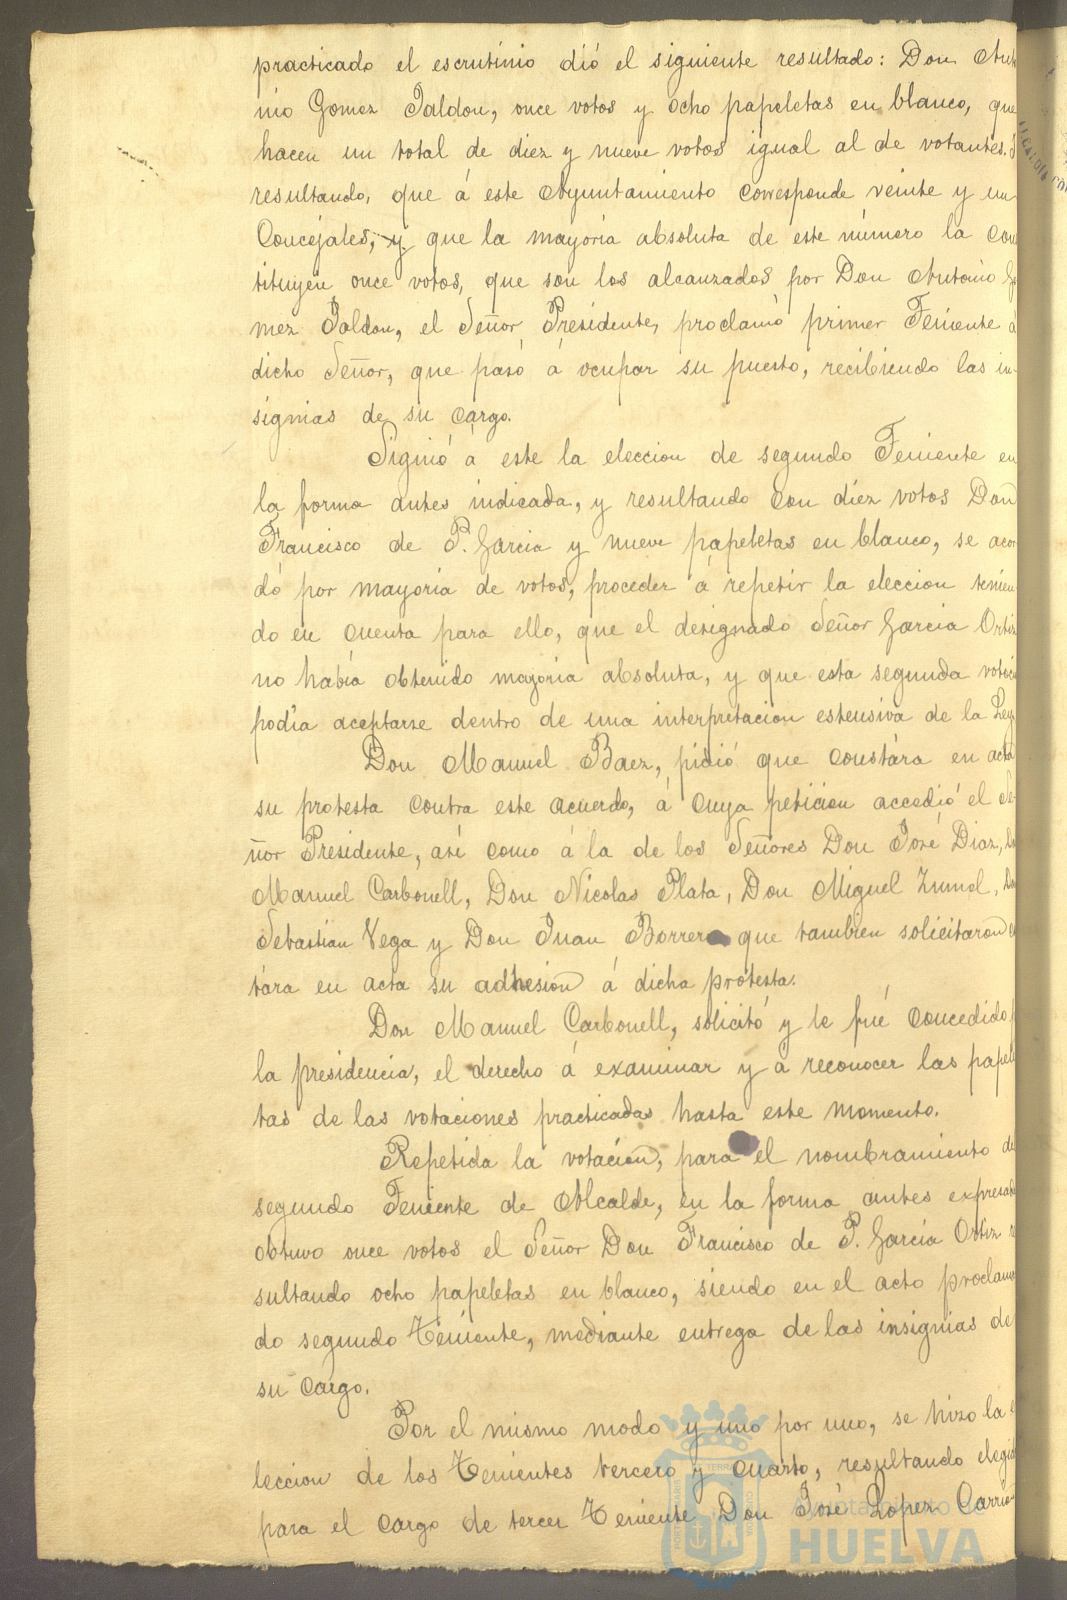 practicado el escrutinio dió el siguiente resultado: Don Anto
nio Gomez Jaldon, once votos y ocho papeletas en blanco, que
hacen un total de diez y nueve votos igual al de votantes.
resultando, que á este Ayuntamiento corresponde veinte y un
Concejales, y que la mayoria absoluta de este número la cons
tituyen once votos, que son los alcanzados por Don Antonio Go
mez Jaldon, el Señor Presidente, proclamó primer Teniente á
dicho Señor, que pasó á ocupar su puesto, recibiendo las in-
signias de su cargo.
Siguió á este la eleccion de segundo Teniente en
la forma antes indicada, y resultando con diez votos Don
Francisco de P. Garcia y nueve papeletas en blanco, se acor
dó por mayoria de votos, proceder á repetir la eleccion tenien
do en cuenta para ello, que el designado Señor Garcia Ortiz
no había obtenido mayoria absoluta, y que esta segunda votacion
podía aceptarse dentro de una interpretacion estensiva de la Ley.
Don Manuel Baez, pidió que constára en acta
su protesta contra este acuerdo, á cuya peticion accedió el Se-
ñor Presidente, así como á la de los Señores Don José Diaz, Don
Manuel Carbonell, Don Nicolas Plata, Don Miguel Zumel, Don
Sebastian Vega y Don Juan Borrero que tambien solicitaron
tára en acta su adhesion á dicha protesta.
Don Manuel Carbonell, solicitó y le fué concedido
la presidencia, el derecho á examinar y á reconocer las papele
tas de las votaciones practicadas hasta este momento.
Repetida la votacion, para el nombramiento de
segundo Teniente de Alcalde, en la forma antes expresada
obtuvo once votos el Señor Don Francisco de P. Garcia Ortiz re
sultando ocho papeletas en blanco, siendo en el acto proclama
do segundo Teniente, mediante entrega de las insignias de
su cargo.
Por el mismo modo y uno por uno, se hizo la e
leccion de los Tenientes tercero y cuarto, resultando elegido
para el cargo de tercer Teniente Don José Lopez Carrion
Ayuntamiento de
HUELVA